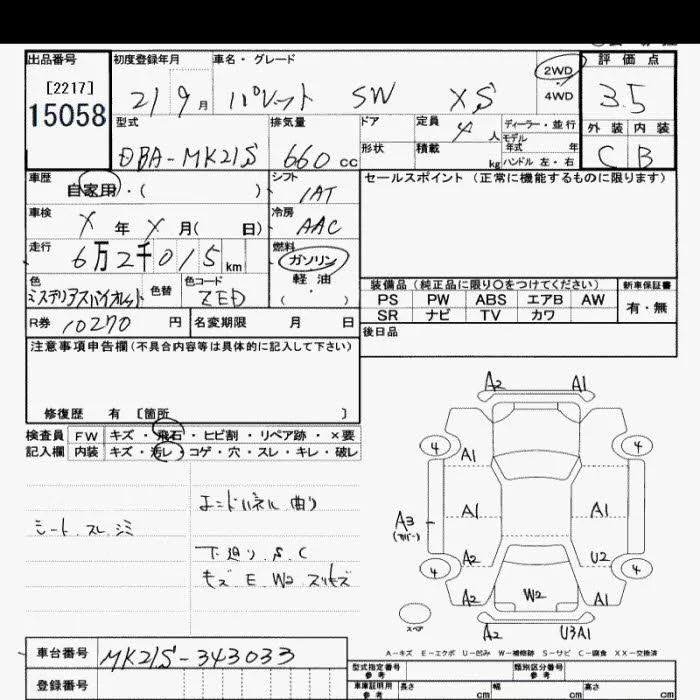 出品番号 初度登録年月 車名・グレード 2WD 4WD 評価点
[2217]
15058
21 9月 パレット SW XS 3.5
型式 排気量 ドア 定員 4人 ディーラー・並行 外装 内装
モデル年式 年
形状 積載 kg ハンドル 左・右
DBA-MK21S 660cc C B
車歴 自家用・( ) シフト 1AT セールスポイント (正常に機能するものに限ります)
車検 X年X月( 日) 冷房 AAC
走行 6万2千015km 燃料 ガソリン
軽油
( ・ )
色 ミステリアスバイオレット 色替 色コード ZED
装備品 (純正品に限り○をつけてください) 新車保証書
PS PW ABS エアB AW 有・無
SR ナビ TV カワ
R券 10270円 名変期限 月 日 後日品
注意事項申告欄(不具合内容等は具体的に記入して下さい)
修復歴 有 〔箇所 〕
検査員 FW キズ・飛石・ヒビ割・リペア跡・×要
記入欄 内装 キズ・汚レ・コゲ・穴・スレ・キレ・破レ
シート スレ シミ
エンドパネル曲り
下廻り S.C
キズ E W2 スリキズ
A2 A1
4 4
A1
A3 A1 A1
(カバー)
A2 U2
4 4
A2 W2 A1
スペア
A2 U3A1
A-キズ E-エクボ U-凹み W-補修跡 S-サビ C-腐食 XX-交換済
車台番号 MK21S-343033
型式指定番号 参考 類別区分番号 参考
登録番号 車庫証明用 参考 長さ cm 幅 cm 高さ cm